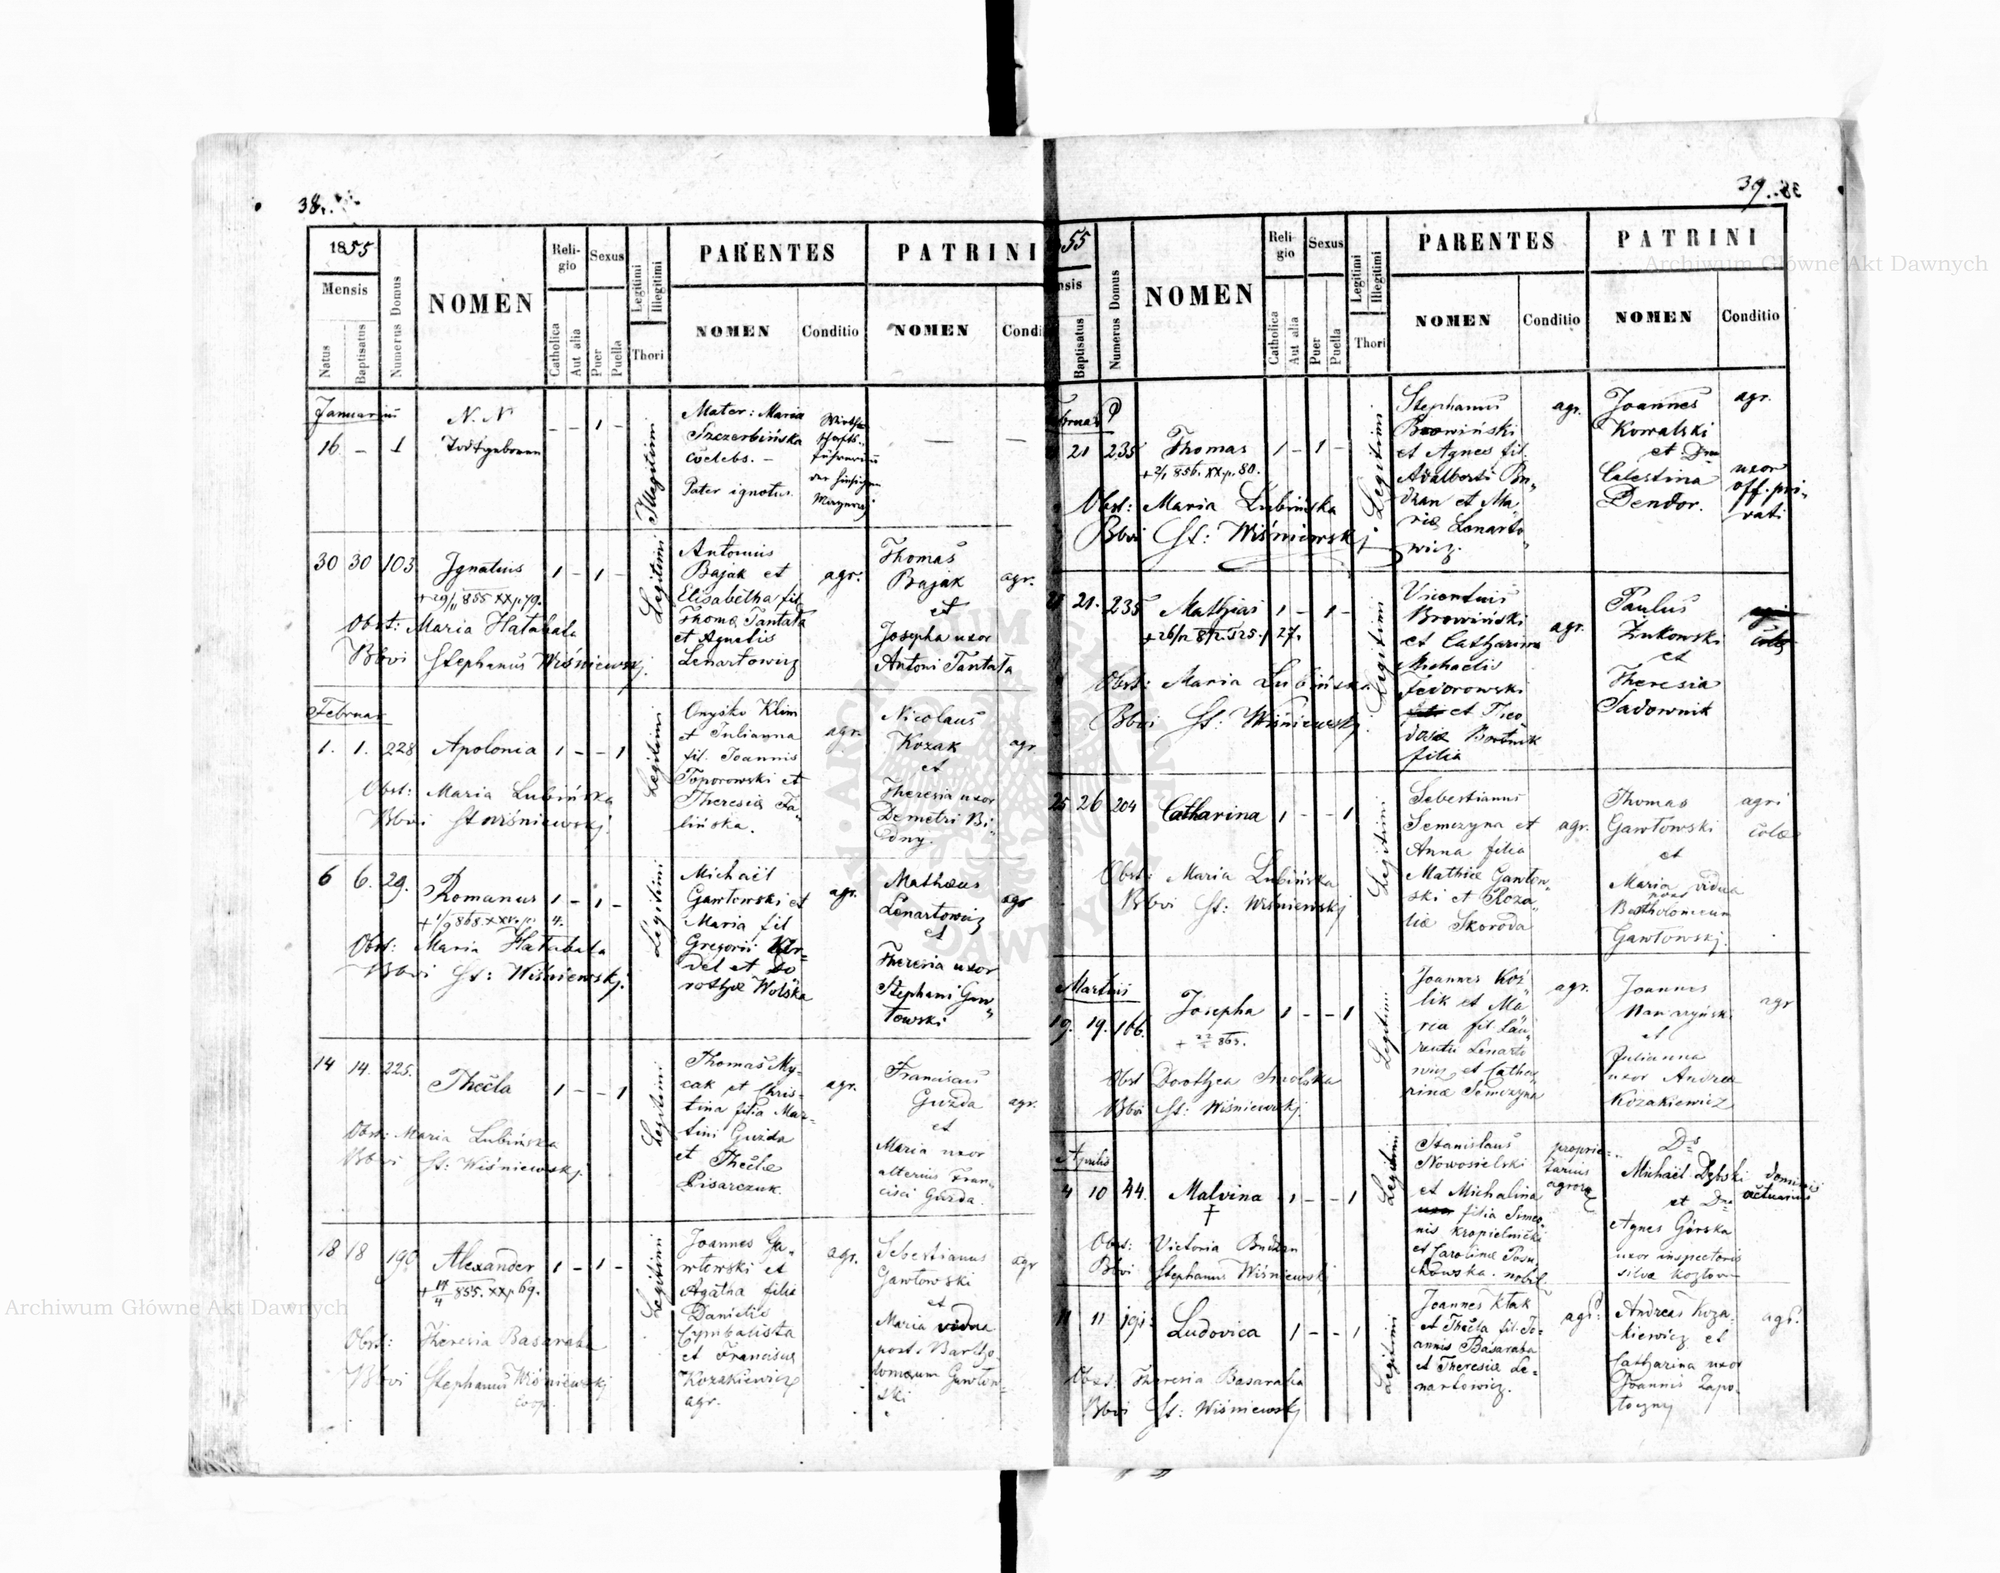 38.
1855
Mensis
Natus
Baptisatus
Numerus Domus
NOMEN
Religio
Catholica
Aut alia
Sexus
Puer
Puella
Legitimi
Illegitimi
Thori
PARENTES
NOMEN
Conditio
PATRINI
NOMEN
Condi
Januarius
16 - 1
N. N
Todtgeboren
- - 1 -
Illegitimi
Mater: Maria
Szczerbińska
coelebs. -
Pater ignotus.
— —
30 30 103
Ignatius
1 - 1 -
+29/11 855 XX p 79.
Obst: Maria Hałabała
Bbvi Stephanus Wiśniewskj.
Legitimi
Antonius
Bajak et
Elisabetha fil.
Thomæ Tantała
et Agnetis
Lenartowicz
agr.
Thomas
Bajak
et
Josepha uxor
Antoni Tantała
agr.
Februar
1. 1. 228
Apolonia
1 - - 1
Obst: Maria Lubińska
Bbvi St Wiśniewskj.
Legitimi
Onyśko Klim
et Julianna
fil. Joannis
Toporowski et
Theresiæ Ja„
lińska.
agr.
Nicolaus
Kozak
et
Theresia uxor
Demetri Bi„
edny.
agr
6 6. 29.
Romanus
1 - 1 -
Obst: Maria Hałabała
Bbvi St: Wiśniewskj.
Legitimi
Michaël
Gawłowski et
Maria fil
Gregorii
del et Do
rothæ Wolska
agr.
Mathæus
Lenartowicz
et
Theresia uxor
Stephani Gaw„
łowski
agr
14 14. 225.
Thecla
1 - - 1
Obst: Maria Lubińska
Bbvi St: Wiśniewskj.
Legitimi
Thomas My„
cak et Chris„
tina filia Mar„
tini Guzda
et Theclæ
Pisarczuk.
agr.
Franciscus
Guzda
et
Maria uxor
alterius Fran„
cisci Guzda.
agr.
18 18 190
Alexander
1 - 1 -
+ 17/4 855. XX p 69.
Obst: Theresia Basaraba
Bbvi Stephanus Wiśniewskj
coop.
Legitimi
Joannes Ga„
włowski et
Agatha filia
Danielis
Cymbalista
et Franciscæ
Kozakiewicz
agr.
agr.
Sebestianus
Gawłowski
et
Maria vidua
post. Bartho
lomæum Gawłow„
ski
agr
39.
55
nsis
Baptisatus
Numerus Domus
NOMEN
Religio
Catholica
Aut alia
Sexus
Puer
Puella
Legitimi
Illegitimi
Thori
PARENTES
NOMEN
Conditio
PATRINI
NOMEN
Conditio
21 235
Thomas
1 - 1 -
+2/1 856. XX p. 80.
Obst: Maria Lubińska
Bbvi St: Wiśniewskj
Legitimi
Stephanus
Browiński
et Agnes fil.
Adalberti Bu„
dzan et Ma„
riæ Lenarto„
wicz.
agr.
Joannes
Kowalski
et Dna
Celestina
Dendor.
agr.
uxor
off. pri„
vati
21. 235
Mathias
1 - 1 -
Obst: Maria Lubińska
Bbvi St: Wiśniewskj.
Legitimi
Vicentius
Browiński
et Catharina
Michaelis
Fedorowski
et Theo„
dosiæ Bortnik
filia
agr.
Paulus
Żukowski
et
Theresia
Sadownik
colæ
25 26 204
Catharina
1 - - 1
Obst: Maria Lubińska
Bbvi St: Wiśniewskj
Legitimi
Sebestianus
Semczyna et
Anna filia
Mathiæ Gawłow„
ski et Roza„
liæ Skoroda
agr.
Thomas
Gawłowski
et
Maria vidua
post
Bartholomæum
Gawłowskj.
agri
colæ
Martius
19. 19. 166.
Josepha
1 - - 1
Obst Dorothea Smolska
Bbvi St: Wiśniewskj.
Legitimi
Joannes Koź„
lik et Ma„
ria fil. Lau„
rentii Lenarto
wicz et Catha„
rinæ Semczyna
agr.
Joannes
et
Julianna
uxor Andreæ
Kozakiewicz
agr
Aprilis
4 10 44.
Malvina
†
1 - - 1
Obst: Victoria Budzan
Bbvi Stephanus Wiśniewskj
Legitimi
Stanislaus
Nowosielski
et Michalina
filia Simeo„
nis Kropielnicki
et Carolinæ
nobil.
proprie„
tarius
agrorum
Ds
Michaël Dębski
et Dna
Agnes Górska
uxor inspectoris
silvæ
actuarius
11 11 191.
Ludovica
1 - - 1
Obst: Theresia Basaraba
Bbvi St: Wiśniewskj
Legitimi
Joannes Kłak
et Thecla fil. Jo„
annis Basaraba
et Theresiæ Le„
nartowicz.
agr.
Andreas Koza„
kiewicz et
Catharina uxor
Joannis Zapo„
toczny
agr.
Archiwum Główne Akt Dawnych
Archiwum Główne Akt Dawnych